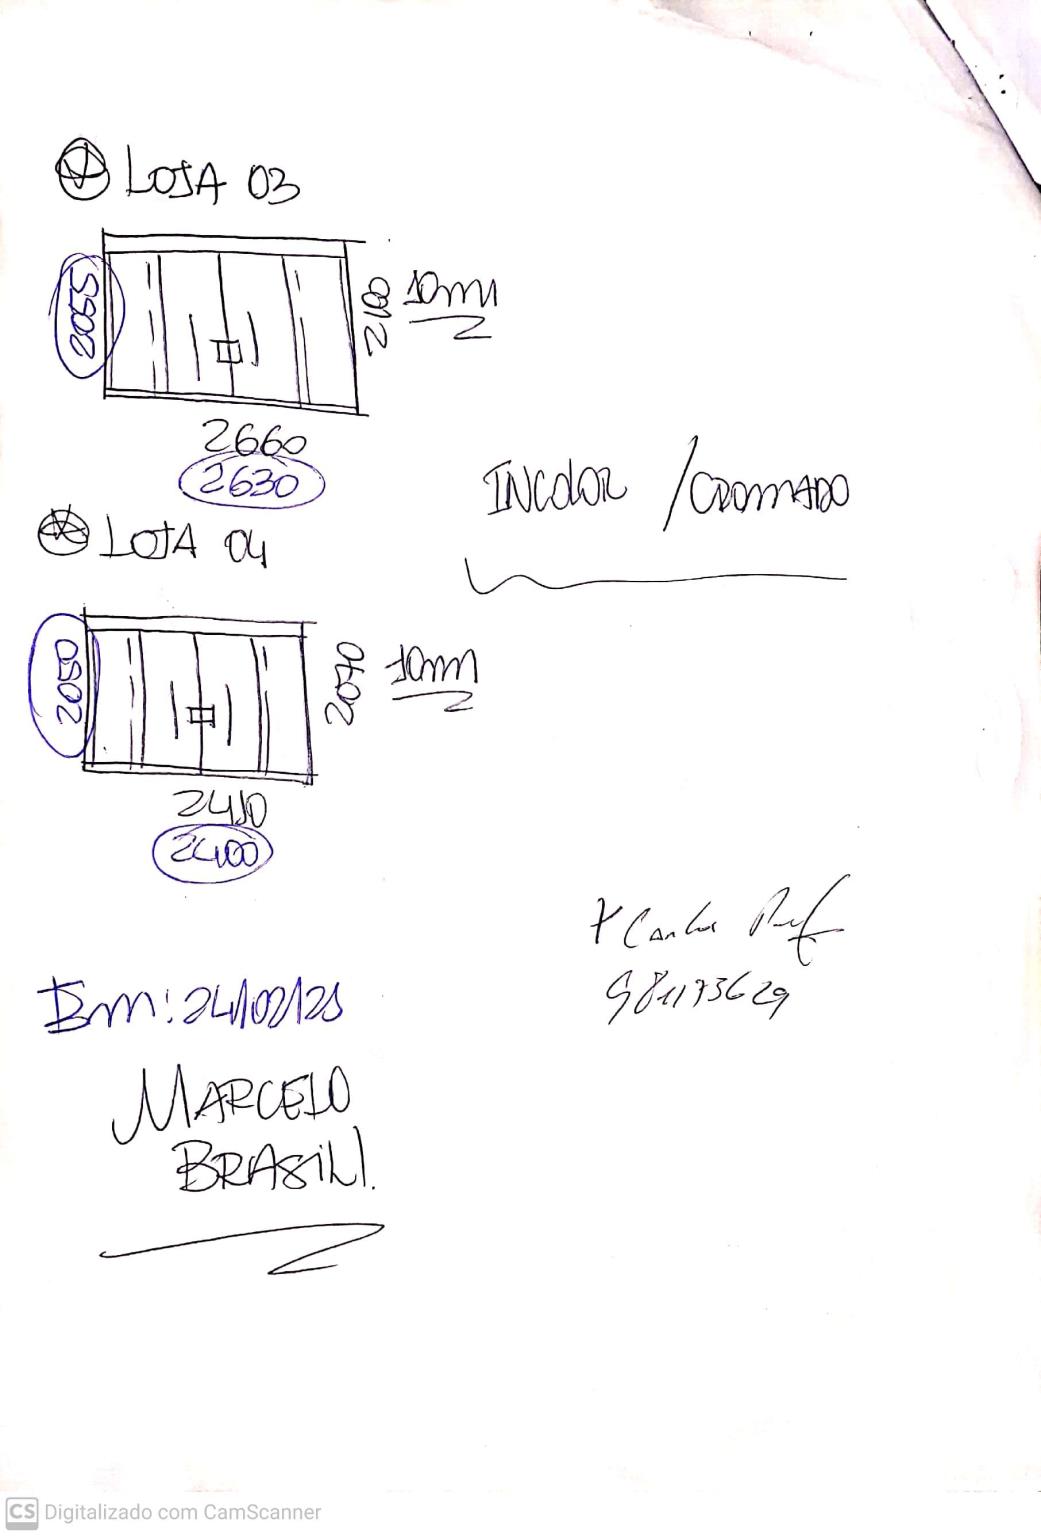 LOJA 03
2055
2100
10mm
2660
2630
INCOLOR / CROMADO
LOJA 04
2050
2070
10mm
2410
2400
Carlos
981173629
Em: 24/02/21
MARCELO
BRASIL.
CS Digitalizado com CamScanner